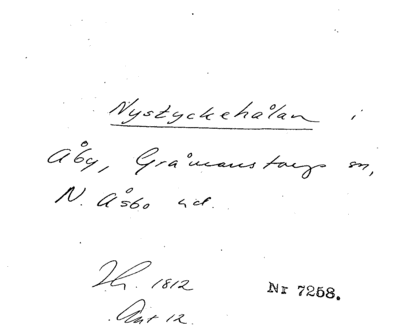 Nystyckehålan i
Åby, Gråmanstorps sn,
N. Åsbo hd.
1812
Nr 7258.
12.